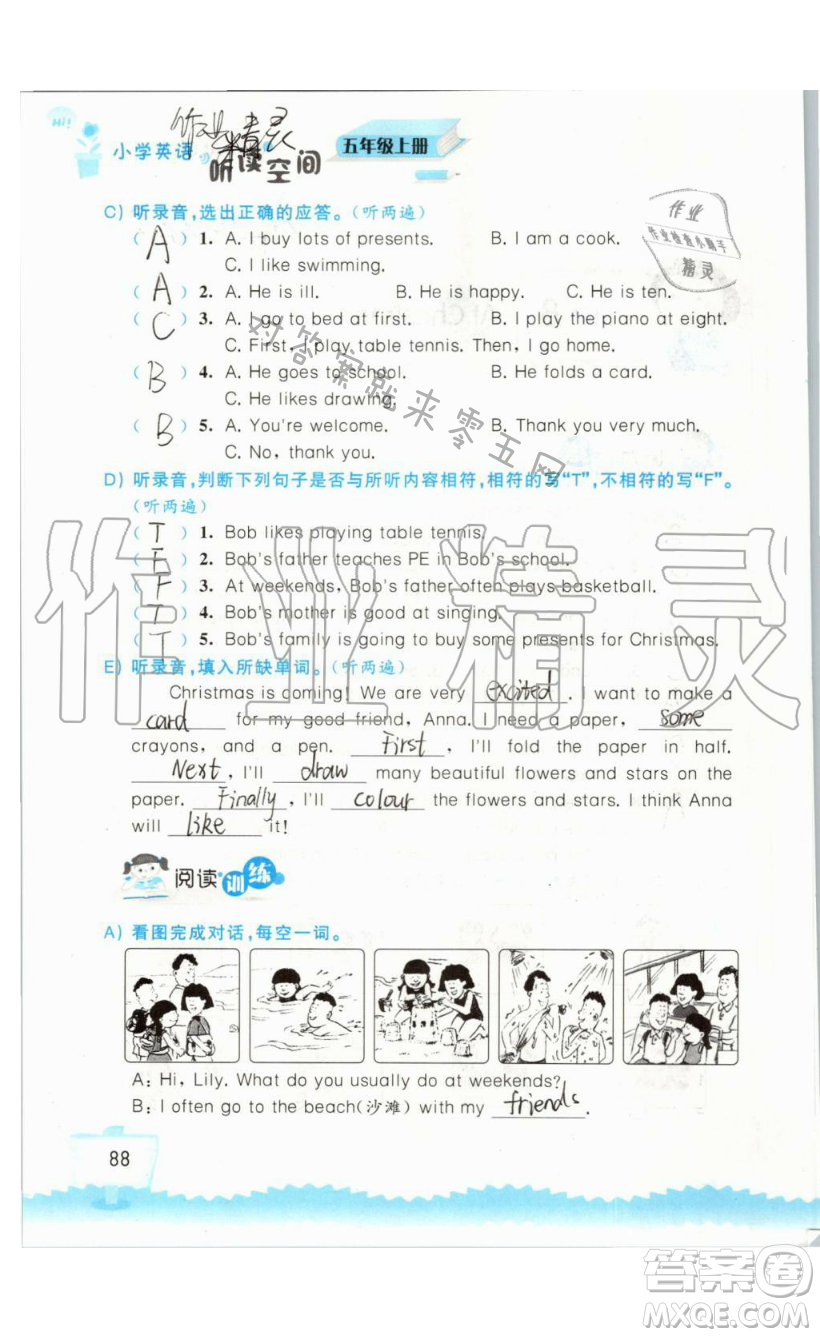 Hi!
作业精灵
小学英语 听读空间 五年级上册
C) 听录音,选出正确的应答。(听两遍)
作业
作业检查小助手
精灵
( A ) 1. A. I buy lots of presents. B. I am a cook.
C. I like swimming.
( A ) 2. A. He is ill. B. He is happy. C. He is ten.
( C ) 3. A. I go to bed at first. B. I play the piano at eight.
C. First, I play table tennis. Then, I go home.
( B ) 4. A. He goes to school. B. He folds a card.
C. He likes drawing.
( B ) 5. A. You're welcome. B. Thank you very much.
C. No, thank you.
对答案就来零五网
D) 听录音,判断下列句子是否与所听内容相符,相符的写“T”,不相符的写“F”。
(听两遍)
( T ) 1. Bob likes playing table tennis.
( F ) 2. Bob's father teaches PE in Bob's school.
( F ) 3. At weekends, Bob's father often plays basketball.
( T ) 4. Bob's mother is good at singing.
( T ) 5. Bob's family is going to buy some presents for Christmas.
作业精灵
E) 听录音,填入所缺单词。(听两遍)
Christmas is coming! We are very excited. I want to make a
card for my good friend, Anna. I need a paper, some
crayons, and a pen. First, I'll fold the paper in half.
Next, I'll draw many beautiful flowers and stars on the
paper. Finally, I'll colour the flowers and stars. I think Anna
will like it!
阅读训练
A) 看图完成对话,每空一词。
A: Hi, Lily. What do you usually do at weekends?
B: I often go to the beach(沙滩) with my friends.
88
答案卷
MXQE.COM